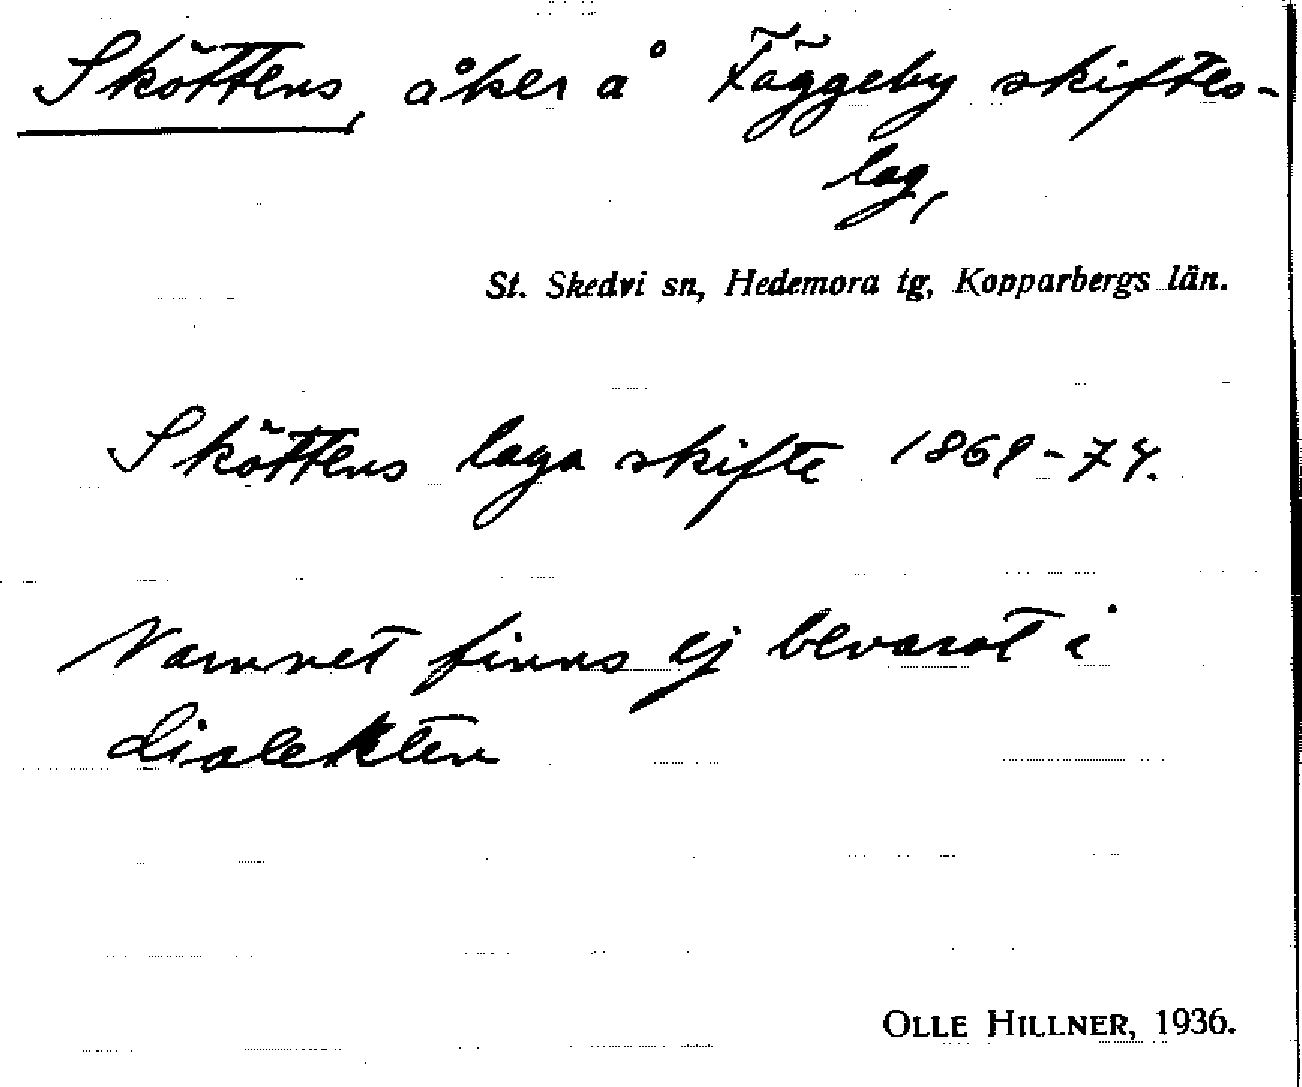 Sköttens, åker å Fäggeby skiftes-
lag,
St. Skedvi sn, Hedemora tg, Kopparbergs län.
Sköttens laga skifte 1869-74.
Namnet finns ej bevarat i
dialekten
OLLE HILLNER, 1936.